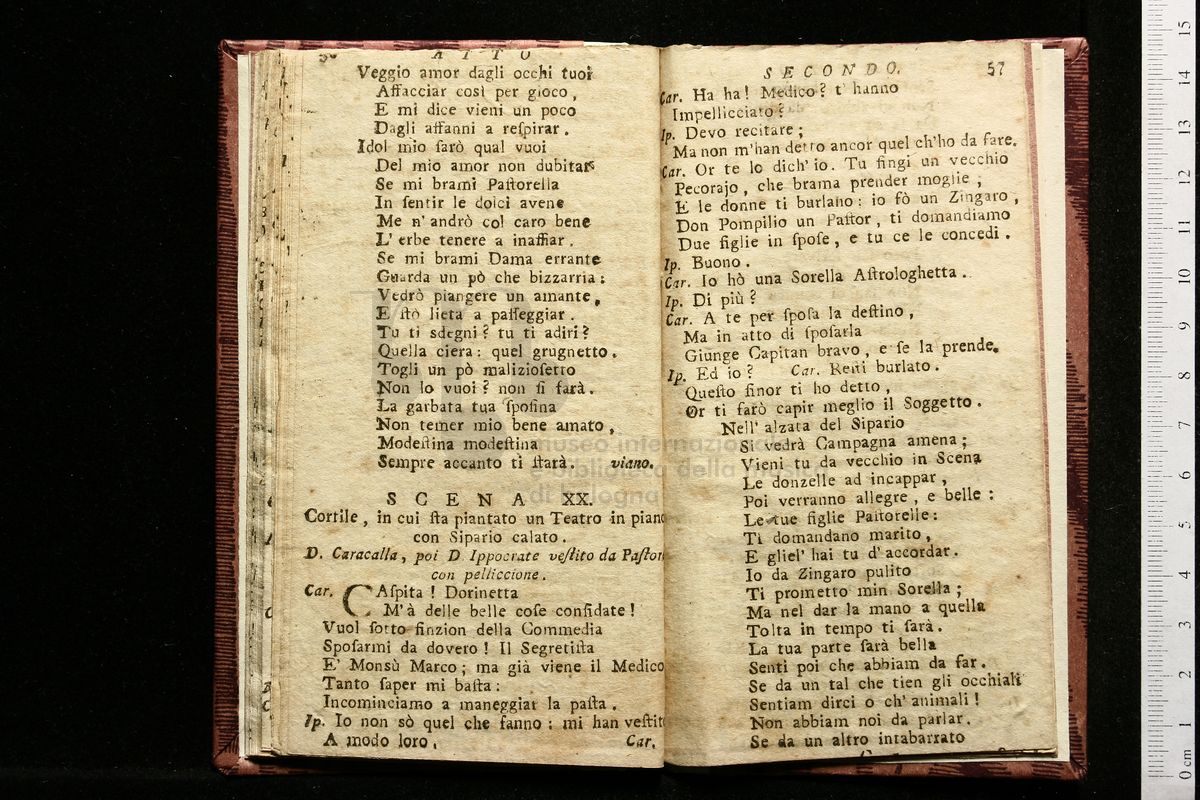 56 ATTO
Veggio amor dagli occhi tuoi
Affacciar così per gioco,
E mi dice vieni un poco
Dagli affanni a reſpirar.
Idol mio farò qual vuoi
Del mio amor non dubitar
Se mi brami Paſtorella
In ſentir le dolci avene
Me n' andrò col caro bene
L' erbe tenere a inaffiar.
Se mi brami Dama errante
Guarda un pò che bizzarria:
Vedrò piangere un amante,
E ſtò lieta a paſſeggiar.
Tu ti sdegni? tu ti adiri?
Quella ciera: quel grugnetto.
Togli un pò malizioſetto
Non lo vuoi? non ſi farà.
La garbata tua ſpoſina
Non temer mio bene amato,
Modeſtina modeſtina
Sempre accanto ti ſtarà. viano.
SCENA XX.
Cortile, in cui ſta piantato un Teatro in piano
con Sipario calato.
D. Caracalla, poi D Ippocrate veſtito da Paſtor
con pelliccione.
Car. CAſpita! Dorinetta
M'à delle belle coſe confidate!
Vuol ſotto finzion della Commedia
Spoſarmi da dovero! Il Segretiſta
E' Monsù Marco; ma già viene il Medico
Tanto ſaper mi baſta:
Incominciamo a maneggiar la paſta.
Ip. Io non sò quel che fanno: mi han veſtito
A modo loro. Car.
SECONDO. 57
Car. Ha ha! Medico? t' hanno
Impellicciato?
Ip. Devo recitare;
Ma non m'han detto ancor quel ch'ho da fare.
Car. Or te lo dich' io. Tu fingi un vecchio
Pecorajo, che brama prender moglie,
E le donne ti burlano: io fò un Zingaro,
Don Pompilio un Paſtor, ti domandiamo
Due figlie in ſpoſe, e tu ce le concedi.
Ip. Buono.
Car. Io hò una Sorella Aſtrologhetta.
Ip. Di più?
Car. A te per ſpoſa la deſtino,
Ma in atto di ſpoſarla
Giunge Capitan bravo, e ſe la prende.
Ip. Ed io? Car. Reſti burlato.
Queſto finor ti ho detto,
Or ti farò capir meglio il Soggetto.
Nell' alzata del Sipario
Si vedrà Campagna amena;
Vieni tu da vecchio in Scena
Le donzelle ad incappar,
Poi verranno allegre, e belle:
Le tue figlie Paſtorelle:
Ti domandano marito,
E gliel' hai tu d' accordar.
Io da Zingaro pulito
Ti prometto min Sorella;
Ma nel dar la mano a quella
Tolta in tempo ti ſarà.
La tua parte ſarà bella
Senti poi che abbiam da far.
Se da un tal che tien gli occhiali
Sentiam dirci o ch' animali!
Non abbiam noi da parlar.
Se da un altro intabarrato
museo internazionale
e biblioteca della musica
di bologna
0 cm 1 2 3 4 5 6 7 8 9 10 11 12 13 14 15